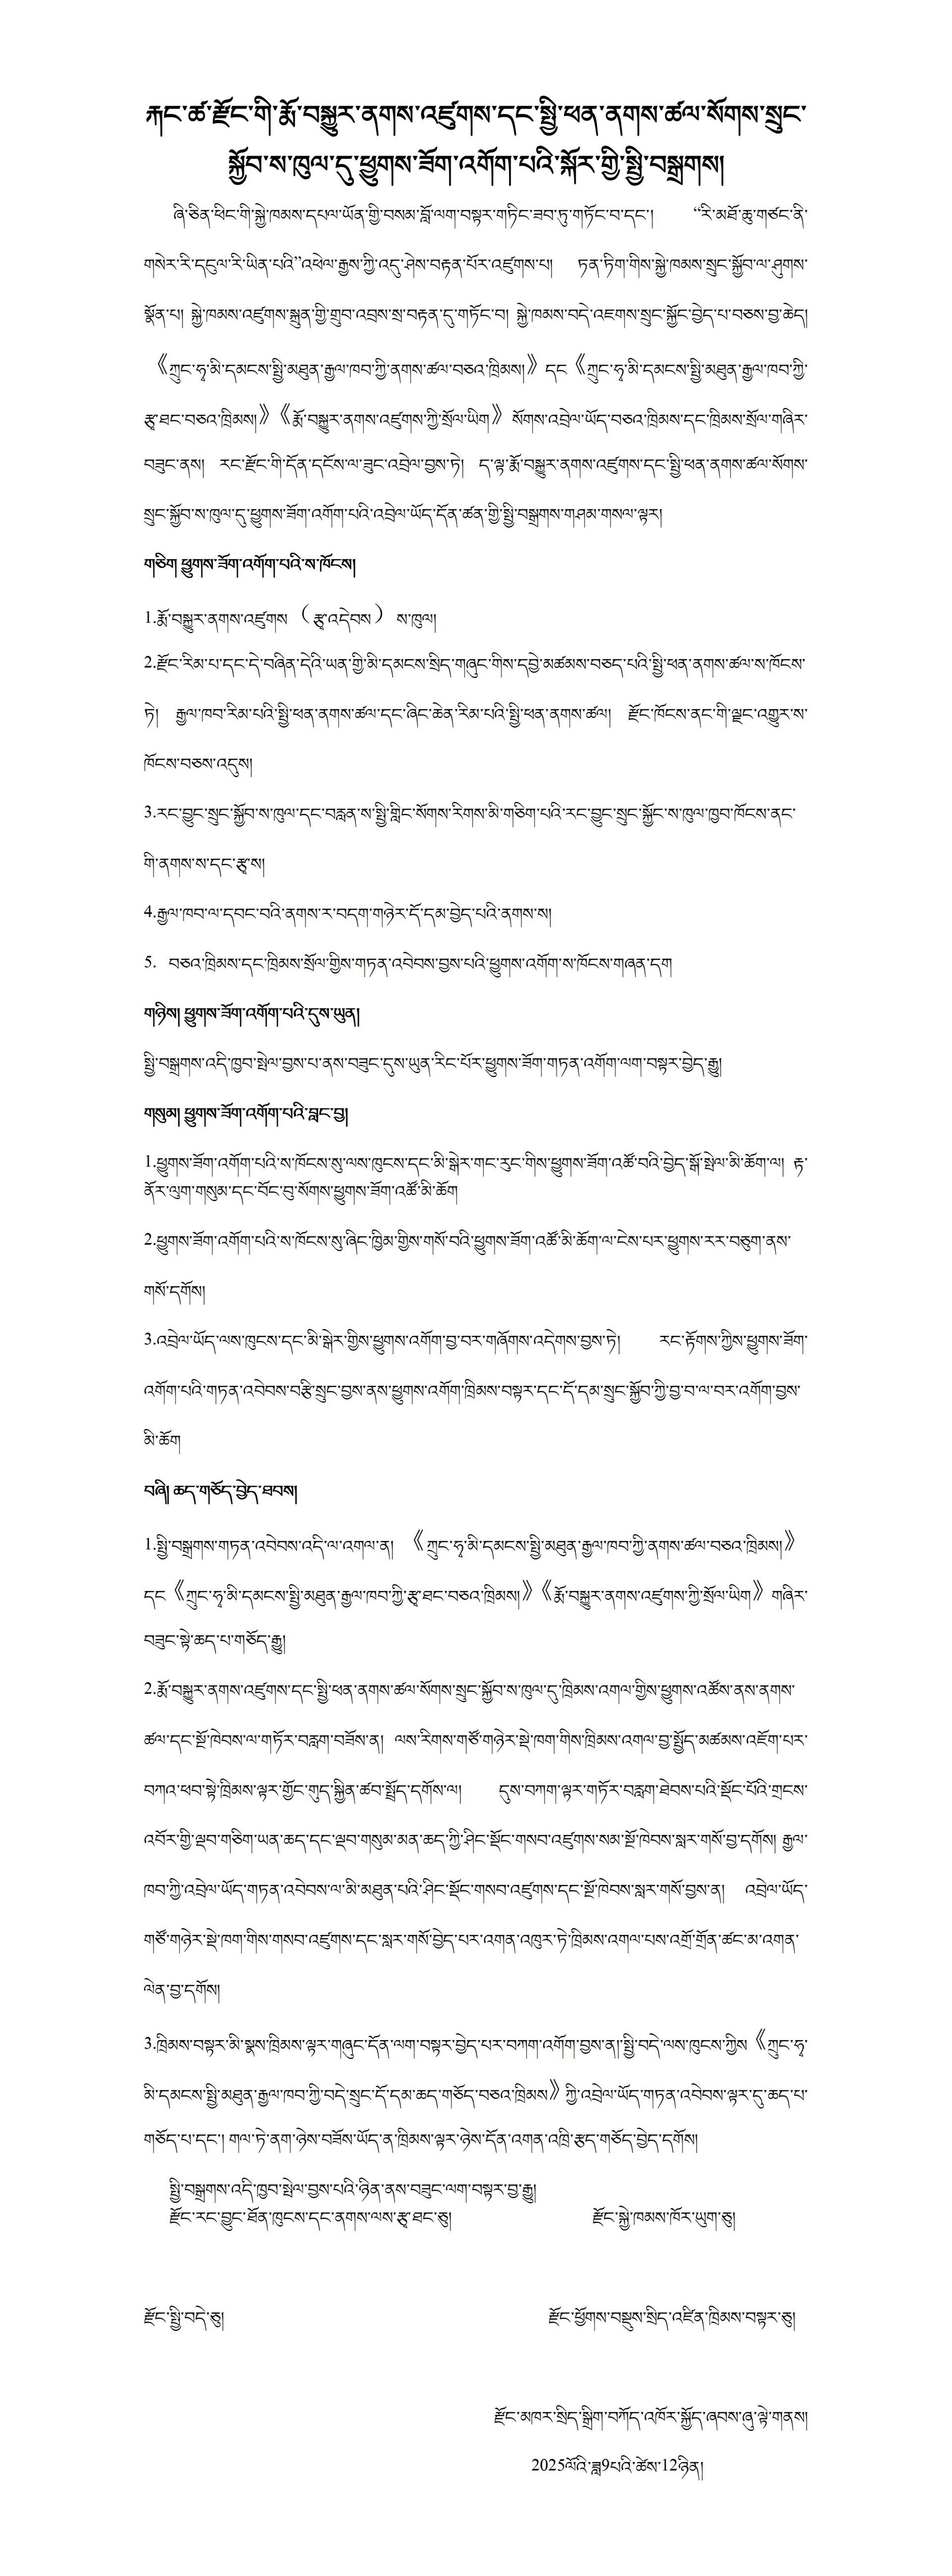 རྐང་ཚ་རྫོང་གི་རྨོ་བསྐྱུར་ནགས་འཛུགས་དང་སྤྱི་ཕན་ནགས་ཚལ་སོགས་སྲུང་
སྐྱོབ་ས་ཁུལ་དུ་ཕྱུགས་ཟོག་འགོག་པའི་སྐོར་གྱི་སྤྱི་བསྒྲགས།
ཞི་ཅིན་ཕིང་གི་སྐྱེ་ཁམས་དཔལ་ཡོན་གྱི་བསམ་བློ་ལག་བསྟར་གཏིང་ཟབ་ཏུ་གཏོང་བ་དང་། “རི་མཐོ་ཆུ་གཙང་ནི་
གསེར་རི་དངུལ་རི་ཡིན་པའི”འཕེལ་རྒྱས་ཀྱི་འདུ་ཤེས་བརྟན་པོར་འཛུགས་པ། ཏན་ཏིག་གིས་སྐྱེ་ཁམས་སྲུང་སྐྱོབ་ལ་ཤུགས་
སྣོན་པ། སྐྱེ་ཁམས་འཛུགས་སྐྲུན་གྱི་གྲུབ་འབྲས་སྲ་བརྟན་དུ་གཏོང་བ། སྐྱེ་ཁམས་བདེ་འཇགས་སྲུང་སྐྱོང་བྱེད་པ་བཅས་བྱ་ཆེད།
《ཀྲུང་ཧྭ་མི་དམངས་སྤྱི་མཐུན་རྒྱལ་ཁབ་ཀྱི་ནགས་ཚལ་བཅའ་ཁྲིམས།》དང《ཀྲུང་ཧྭ་མི་དམངས་སྤྱི་མཐུན་རྒྱལ་ཁབ་ཀྱི་
རྩྭ་ཐང་བཅའ་ཁྲིམས།》《རྨོ་བསྐྱུར་ནགས་འཛུགས་ཀྱི་སྲོལ་ཡིག》སོགས་འབྲེལ་ཡོད་བཅའ་ཁྲིམས་དང་ཁྲིམས་སྲོལ་གཞིར་
བཟུང་ནས། རང་རྫོང་གི་དོན་དངོས་ལ་ཟུང་འབྲེལ་བྱས་ཏེ། ད་ལྟ་རྨོ་བསྐྱུར་ནགས་འཛུགས་དང་སྤྱི་ཕན་ནགས་ཚལ་སོགས་
སྲུང་སྐྱོབ་ས་ཁུལ་དུ་ཕྱུགས་ཟོག་འགོག་པའི་འབྲེལ་ཡོད་དོན་ཚན་གྱི་སྤྱི་བསྒྲགས་གཤམ་གསལ་ལྟར།
གཅིག ཕྱུགས་ཟོག་འགོག་པའི་ས་ཁོངས།
1.རྨོ་བསྐྱུར་ནགས་འཛུགས （རྩྭ་འདེབས） ས་ཁུལ།
2.རྫོང་རིམ་པ་དང་དེ་བཞིན་དེའི་ཡན་གྱི་མི་དམངས་སྲིད་གཞུང་གིས་དབྱེ་མཚམས་བཅད་པའི་སྤྱི་ཕན་ནགས་ཚལ་ས་ཁོངས་
ཏེ། རྒྱལ་ཁབ་རིམ་པའི་སྤྱི་ཕན་ནགས་ཚལ་དང་ཞིང་ཆེན་རིམ་པའི་སྤྱི་ཕན་ནགས་ཚལ། རྫོང་ཁོངས་ནང་གི་ལྗང་འགྱུར་ས་
ཁོངས་བཅས་འདུས།
3.རང་བྱུང་སྲུང་སྐྱོབ་ས་ཁུལ་དང་བརླན་ས་སྤྱི་གླིང་སོགས་རིགས་མི་གཅིག་པའི་རང་བྱུང་སྲུང་སྐྱོང་ས་ཁུལ་ཁྱབ་ཁོངས་ནང་
གི་ནགས་ས་དང་རྩྭ་ས།
4.རྒྱལ་ཁབ་ལ་དབང་བའི་ནགས་ར་བདག་གཉེར་དོ་དམ་བྱེད་པའི་ནགས་ས།
5. བཅའ་ཁྲིམས་དང་ཁྲིམས་སྲོལ་གྱིས་གཏན་འབེབས་བྱས་པའི་ཕྱུགས་འགོག་ས་ཁོངས་གཞན་དག
གཉིས། ཕྱུགས་ཟོག་འགོག་པའི་དུས་ཡུན།
སྤྱི་བསྒྲགས་འདི་ཁྱབ་སྤེལ་བྱས་པ་ནས་བཟུང་དུས་ཡུན་རིང་པོར་ཕྱུགས་ཟོག་གཏན་འགོག་ལག་བསྟར་བྱེད་རྒྱུ།
གསུམ། ཕྱུགས་ཟོག་འགོག་པའི་བླང་བྱ།
1.ཕྱུགས་ཟོག་འགོག་པའི་ས་ཁོངས་སུ་ལས་ཁུངས་དང་མི་སྒེར་གང་རུང་གིས་ཕྱུགས་ཟོག་འཚོ་བའི་བྱེད་སྒོ་སྤེལ་མི་ཆོག་ལ། རྟ་
ནོར་ལུག་གསུམ་དང་བོང་བུ་སོགས་ཕྱུགས་ཟོག་འཚོ་མི་ཆོག
2.ཕྱུགས་ཟོག་འགོག་པའི་ས་ཁོངས་སུ་ཞིང་ཁྱིམ་གྱིས་གསོ་བའི་ཕྱུགས་ཟོག་འཚོ་མི་ཆོག་ལ་ངེས་པར་ཕྱུགས་རར་བཅུག་ནས་
གསོ་དགོས།
3.འབྲེལ་ཡོད་ལས་ཁུངས་དང་མི་སྒེར་གྱིས་ཕྱུགས་འགོག་བྱ་བར་གཞོགས་འདེགས་བྱས་ཏེ། རང་རྟོགས་ཀྱིས་ཕྱུགས་ཟོག་
འགོག་པའི་གཏན་འབེབས་བརྩི་སྲུང་བྱས་ནས་ཕྱུགས་འགོག་ཁྲིམས་བསྟར་དང་དོ་དམ་སྲུང་སྐྱོབ་ཀྱི་བྱ་བ་ལ་བར་འགོག་བྱས་
མི་ཆོག
བཞི། ཆད་གཅོད་བྱེད་ཐབས།
1.སྤྱི་བསྒྲགས་གཏན་འབེབས་འདི་ལ་འགལ་ན། 《ཀྲུང་ཧྭ་མི་དམངས་སྤྱི་མཐུན་རྒྱལ་ཁབ་ཀྱི་ནགས་ཚལ་བཅའ་ཁྲིམས།》
དང《ཀྲུང་ཧྭ་མི་དམངས་སྤྱི་མཐུན་རྒྱལ་ཁབ་ཀྱི་རྩྭ་ཐང་བཅའ་ཁྲིམས།》《རྨོ་བསྐྱུར་ནགས་འཛུགས་ཀྱི་སྲོལ་ཡིག》གཞིར་
བཟུང་སྟེ་ཆད་པ་གཅོད་རྒྱུ།
2.རྨོ་བསྐྱུར་ནགས་འཛུགས་དང་སྤྱི་ཕན་ནགས་ཚལ་སོགས་སྲུང་སྐྱོབ་ས་ཁུལ་དུ་ཁྲིམས་འགལ་གྱིས་ཕྱུགས་འཚོས་ནས་ནགས་
ཚལ་དང་སྔོ་ཁེབས་ལ་གཏོར་བརླག་བཟོས་ན། ལས་རིགས་གཙོ་གཉེར་སྡེ་ཁག་གིས་ཁྲིམས་འགལ་བྱ་སྤྱོད་མཚམས་འཇོག་པར་
བཀའ་ཕབ་སྟེ་ཁྲིམས་ལྟར་གྱོང་གུད་སྐྱིན་ཚབ་སྤྲོད་དགོས་ལ། དུས་བཀག་ལྟར་གཏོར་བརླག་ཐེབས་པའི་སྡོང་པོའི་གྲངས་
འབོར་གྱི་ལྡབ་གཅིག་ཡན་ཆད་དང་ལྡབ་གསུམ་མན་ཆད་ཀྱི་ཤིང་སྡོང་གསབ་འཛུགས་སམ་སྔོ་ཁེབས་སླར་གསོ་བྱ་དགོས། རྒྱལ་
ཁབ་ཀྱི་འབྲེལ་ཡོད་གཏན་འབེབས་ལ་མི་མཐུན་པའི་ཤིང་སྡོང་གསབ་འཛུགས་དང་སྔོ་ཁེབས་སླར་གསོ་བྱས་ན། འབྲེལ་ཡོད་
གཙོ་གཉེར་སྡེ་ཁག་གིས་གསབ་འཛུགས་དང་སླར་གསོ་བྱེད་པར་འགན་འཁུར་ཏེ་ཁྲིམས་འགལ་པས་འགྲོ་གྲོན་ཚང་མ་འགན་
ལེན་བྱ་དགོས།
3.ཁྲིམས་བསྟར་མི་སྣས་ཁྲིམས་ལྟར་གཞུང་དོན་ལག་བསྟར་བྱེད་པར་བཀག་འགོག་བྱས་ན།སྤྱི་བདེ་ལས་ཁུངས་ཀྱིས《ཀྲུང་ཧྭ་
མི་དམངས་སྤྱི་མཐུན་རྒྱལ་ཁབ་ཀྱི་བདེ་སྲུང་དོ་དམ་ཆད་གཅོད་བཅའ་ཁྲིམས》ཀྱི་འབྲེལ་ཡོད་གཏན་འབེབས་ལྟར་དུ་ཆད་པ་
གཅོད་པ་དང་། གལ་ཏེ་ནག་ཉེས་བཟོས་ཡོད་ན་ཁྲིམས་ལྟར་ཉེས་དོན་འགན་འཁྲི་རྩད་གཅོད་བྱེད་དགོས།
སྤྱི་བསྒྲགས་འདི་ཁྱབ་སྤེལ་བྱས་པའི་ཉིན་ནས་བཟུང་ལག་བསྟར་བྱ་རྒྱུ།
རྫོང་རང་བྱུང་ཐོན་ཁུངས་དང་ནགས་ལས་རྩྭ་ཐང་ཅུ། རྫོང་སྐྱེ་ཁམས་ཁོར་ཡུག་ཅུ།
རྫོང་སྤྱི་བདེ་ཅུ། རྫོང་ཕྱོགས་བསྡུས་སྲིད་འཛིན་ཁྲིམས་བསྟར་ཅུ།
རྫོང་མཁར་སྲིད་སྒྲིག་བཀོད་འཁོར་སྐྱོད་ཞབས་ཞུ་ལྟེ་གནས།
2025ལོའི་ཟླ9པའི་ཚེས་12ཉིན།